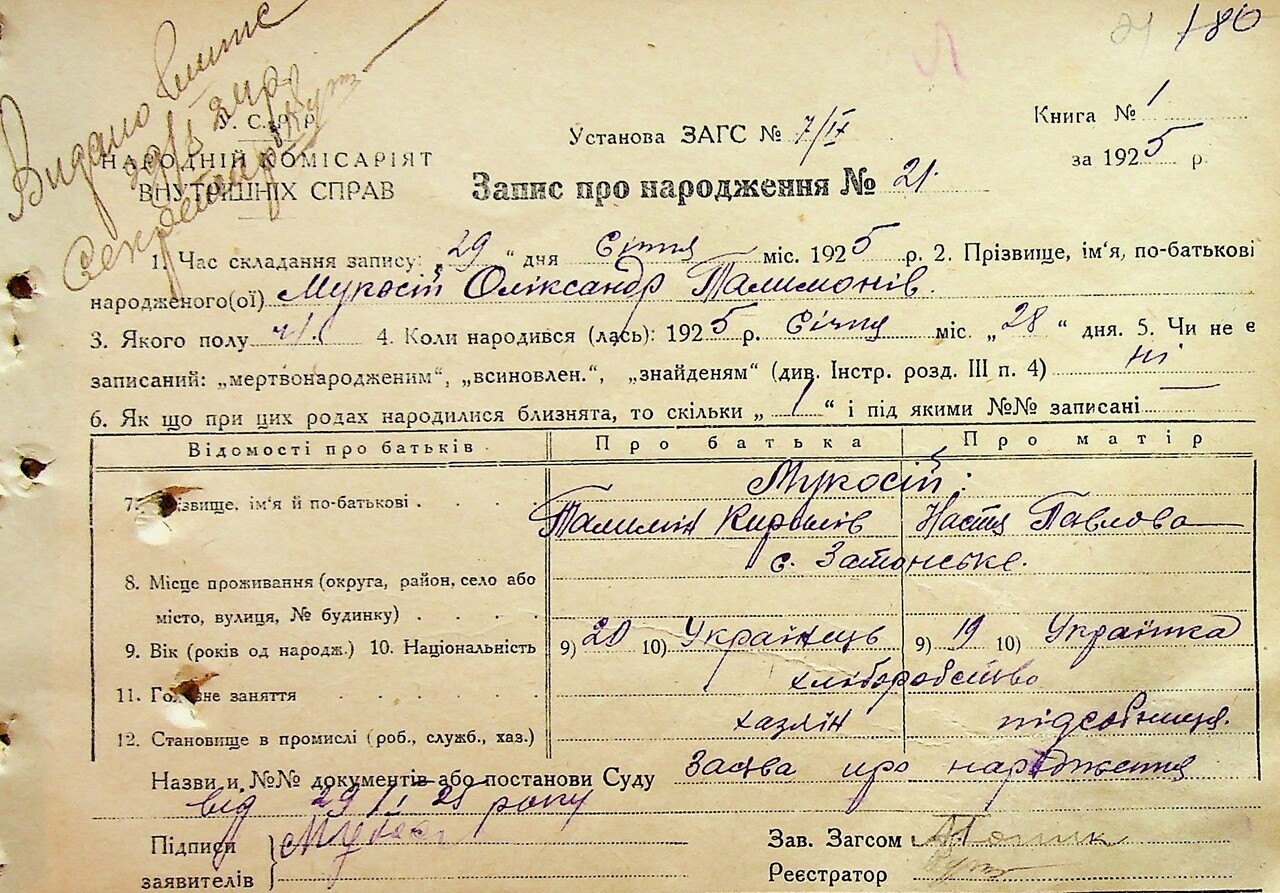 180
21
Видано
У. С. Р. Р.
НАРОДНІЙ КОМІСАРІЯТ
ВНУТРІШНІХ СПРАВ
Установа ЗАГС № 7/IX
Запис про народження № 21.
Книга № 1
за 1925 р.
1. Час складання запису: „29“ дня Січня міс. 1925 р. 2. Прізвище, ім'я, по-батькові
народженого(ої) Мукосій Оліксандр Талимонів.
3. Якого полу ч. 4. Коли народився (лась): 1925 р. Січня міс. „28“ дня. 5. Чи не є
записаний: „мертвонародженим“, „всиновлен.“, „знайденям“ (див. Інстр. розд. III п. 4) ні
6. Як що при цих родах народилися близнята, то скільки „1“ і під якими №№ записані —
Відомості про батьків Про батька Про матір
Мукосій:
7. Прізвище, ім'я й по-батькові Талимін Кирилів Настя Павлова
с. Затонське.
8. Місце проживання (округа, район, село або
місто, вулиця, № будинку)
9. Вік (років од народж.) 10. Національність 9) 20 10) Українець 9) 19 10) Українка
11. Головне заняття хліборобство
12. Становище в промислі (роб., служб., хаз.) хазяїн підсобниця.
Назви и №№ документів або постанови Суду Заява про народження
від 29/I 25 року
Підписи
заявителів
Зав. Загсом
Реєстратор